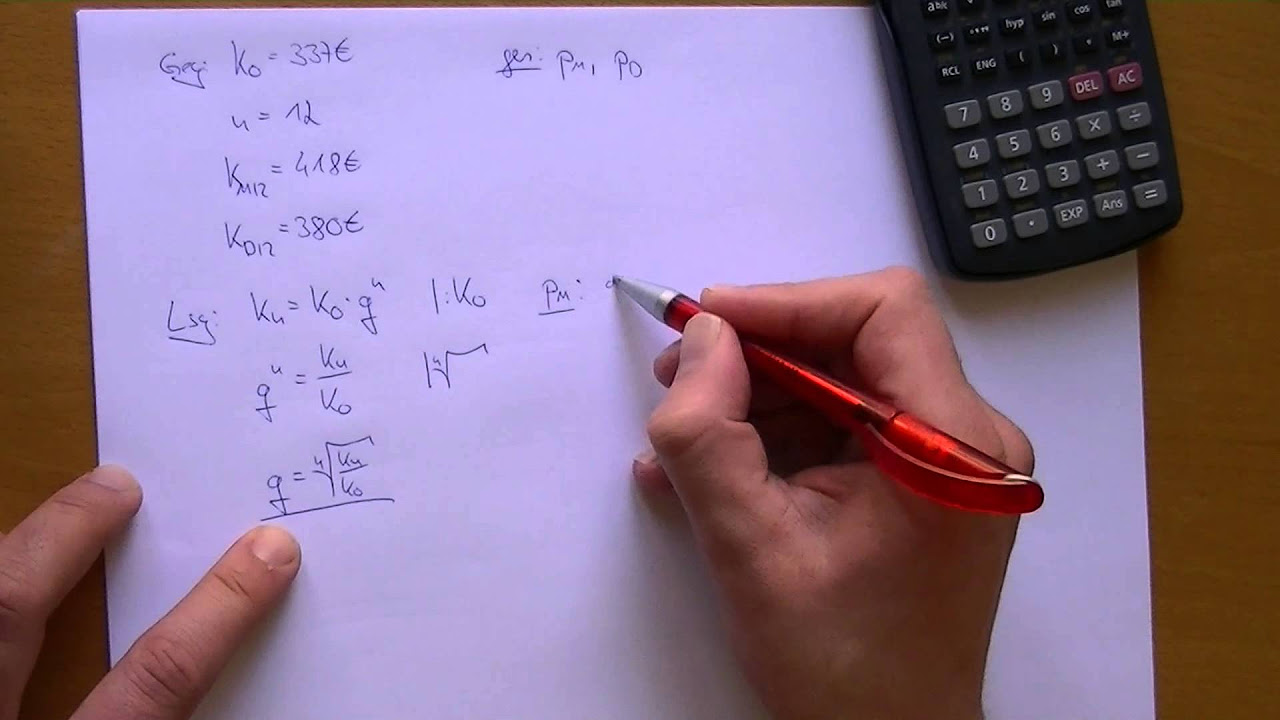 Geg: K₀ = 337€ ges: pₘ, p_D
n = 12
K_M12 = 418€
K_D12 = 380€
Lsg: Kₙ = K₀ · qⁿ |:K₀ pₘ:
qⁿ = Kₙ/K₀ |ⁿ√
q = ⁿ√(Kₙ/K₀)
hyp sin cos tan
(−) M+
RCL ENG ( )
7 8 9 DEL AC
4 5 6 × ÷
1 2 3 + −
0 · EXP Ans =